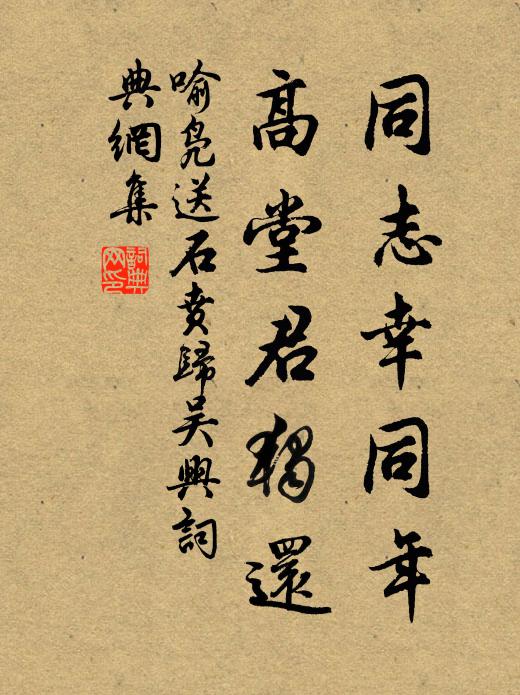 同志幸同年
高堂君獨還
喻鳧送石賁歸吴興詞
典網集
詞典
网印